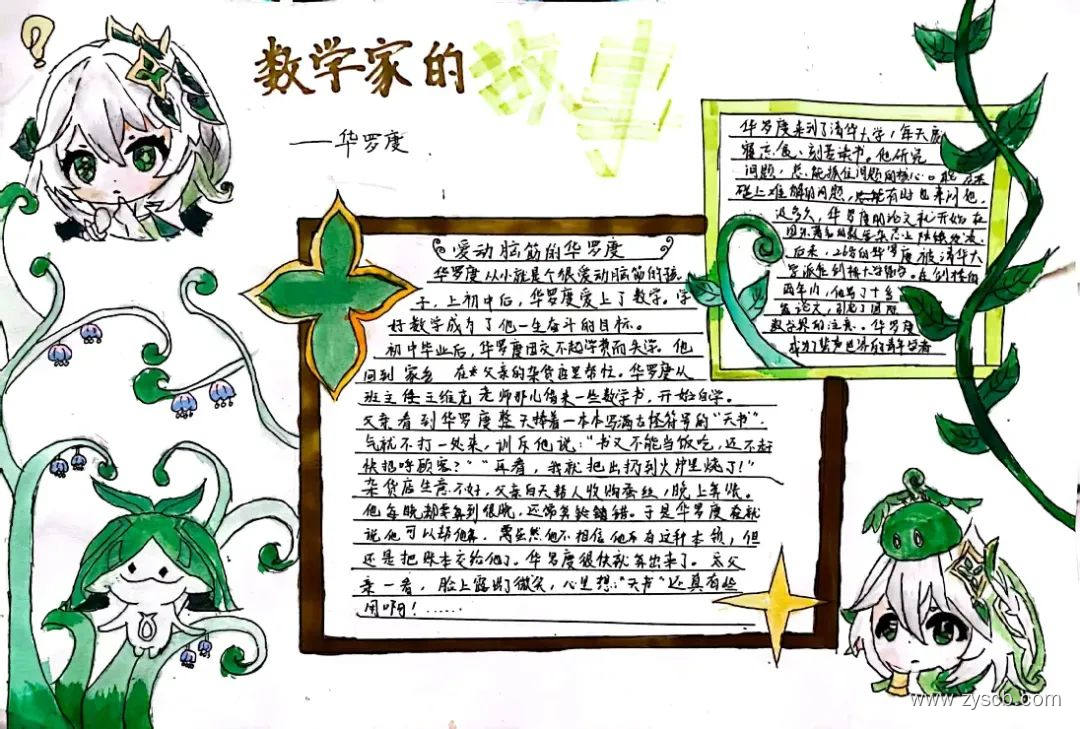 数学家的故事
——华罗庚
爱动脑筋的华罗庚
华罗庚从小就是个很爱动脑筋的孩
子,上初中后,华罗庚爱上了数学。学
好数学成为了他一生奋斗的目标。
初中毕业后,华罗庚因交不起学费而失学。他
回到家乡 在父亲的杂货店里帮忙。华罗庚从
班主任王维克老师那儿借来一些数学书,开始自学。
父亲看到华罗庚整天捧着一本本写满古怪符号的“天书”.
气就不打一处来,训斥他说:“书又不能当饭吃,还不赶
快招呼顾客?”“再看,我就把出扔到火炉里烧了!”
杂货店生意不好,父亲白天帮人收购蚕丝,晚上算账。
他每晚都要算到很晚,还常常算错。于是华罗庚就
说他可以帮他算,虽然他不相信他有这种本领,但
还是把账本交给他了。华罗庚很快就算出来了。父
亲一看,脸上露出了微笑,心里想:“天书”还真有些
用啊!……
华罗庚来到了清华大学,每天废
寝忘食、刻苦读书。他研究
问题,总能抓住问题的核心。
碰上难解的问题,有时也来问他.
没多久,华罗庚的论文就开始在
国外著名的数学杂志上陆续发表.
后来,26岁的华罗庚被清华大
学派往剑桥大学留学。在剑桥的
两年内,他写了十多
篇论文,引起了国际
数学界的注意。华罗庚
成为蜚声世界的青年学者
www.zyscb.com